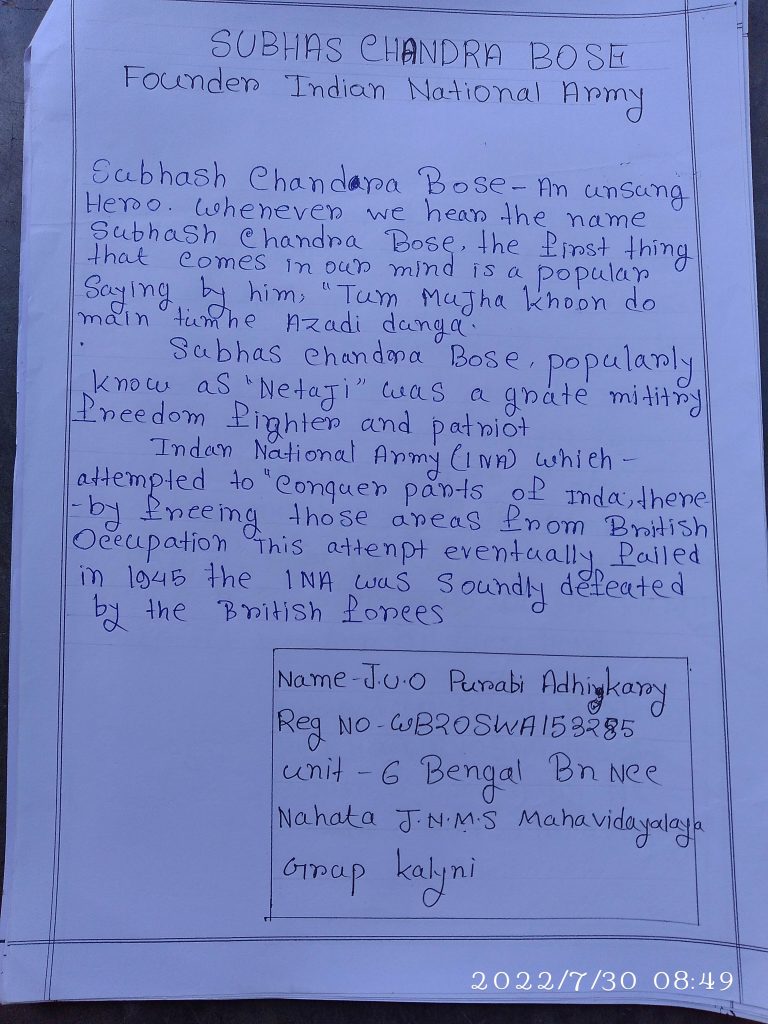 SUBHAS CHANDRA BOSE
Founder Indian National Army
Subhash Chandara Bose - An unsung
Hero. Whenever we hear the name
Subhash Chandra Bose, the first thing
that comes in our mind is a popular
Saying by him, "Tum Mujha khoon do
main tumhe Azadi dunga.
Subhas chandra Bose, popularly
know as "Netaji" was a grate mititry
freedom fighter and patriot
Indan National Army (INA) which -
attempted to "Conquer parts of Inda, there-
-by freeing those areas from British
Occupation This attenpt eventually failed
in 1945 the INA was soundly defeated
by the British forces
Name - J.U.O Purabi Adhiykary
Reg NO - WB20SWA153285
Unit - 6 Bengal Bn Ncc
Nahata J.N.M.S Mahavidayalaya
Grap kalyni
2022/7/30 08:49